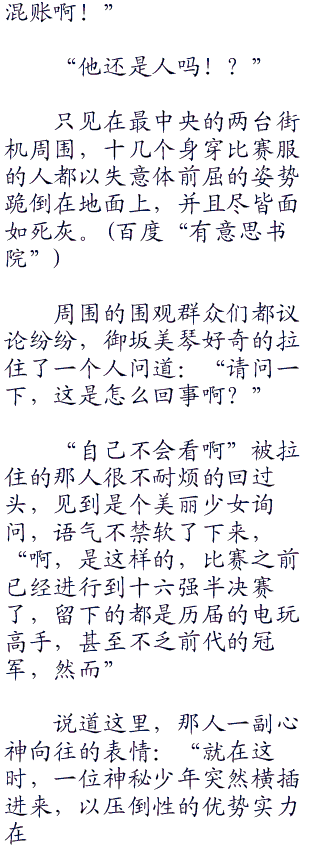 混账啊！”
“他还是人吗！？”
只见在最中央的两台街
机周围，十几个身穿比赛服
的人都以失意体前屈的姿势
跪倒在地面上，并且尽皆面
如死灰。(百度“有意思书
院”)
周围的围观群众们都议
论纷纷，御坂美琴好奇的拉
住了一个人问道：“请问一
下，这是怎么回事啊？”
“自己不会看啊”被拉
住的那人很不耐烦的回过
头，见到是个美丽少女询
问，语气不禁软了下来，
“啊，是这样的，比赛之前
已经进行到十六强半决赛
了，留下的都是历届的电玩
高手，甚至不乏前代的冠
军，然而”
说道这里，那人一副心
神向往的表情：“就在这
时，一位神秘少年突然横插
进来，以压倒性的优势实力
在